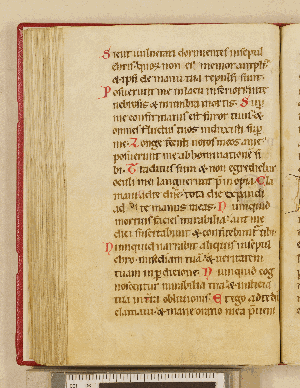 Sicut vulnerati dormientes in sepul
cris quos non es memor ampli
et ipsi de manu tua repulsi sunt
Posuerunt me in lacu inferiori in te
nebrosis et in umbra mortis Sup
me confirmatus est furor tuus et
omnes fluctus tuos induxisti sup
me Longe fecisti notos meos a me
posuerunt me abhominatione si
bi Traditus sum et non egrediebar
oculi mei languerunt p inopia Cla
mavi ad te dne tota die expandi
ad te manus meas Nunquid
mortuis facies mirabilia aut me
dici suscitabunt et confitebunt tibi
Nunquid narrabit aliquis in sepul
chro misediam tua et veritatem
tuam in pdicione Nunquid cog
noscentur mirabilia tua et iusticia
tua in tra oblivionis Et ego ad te dne
clamavi et mane oratio mea pveni